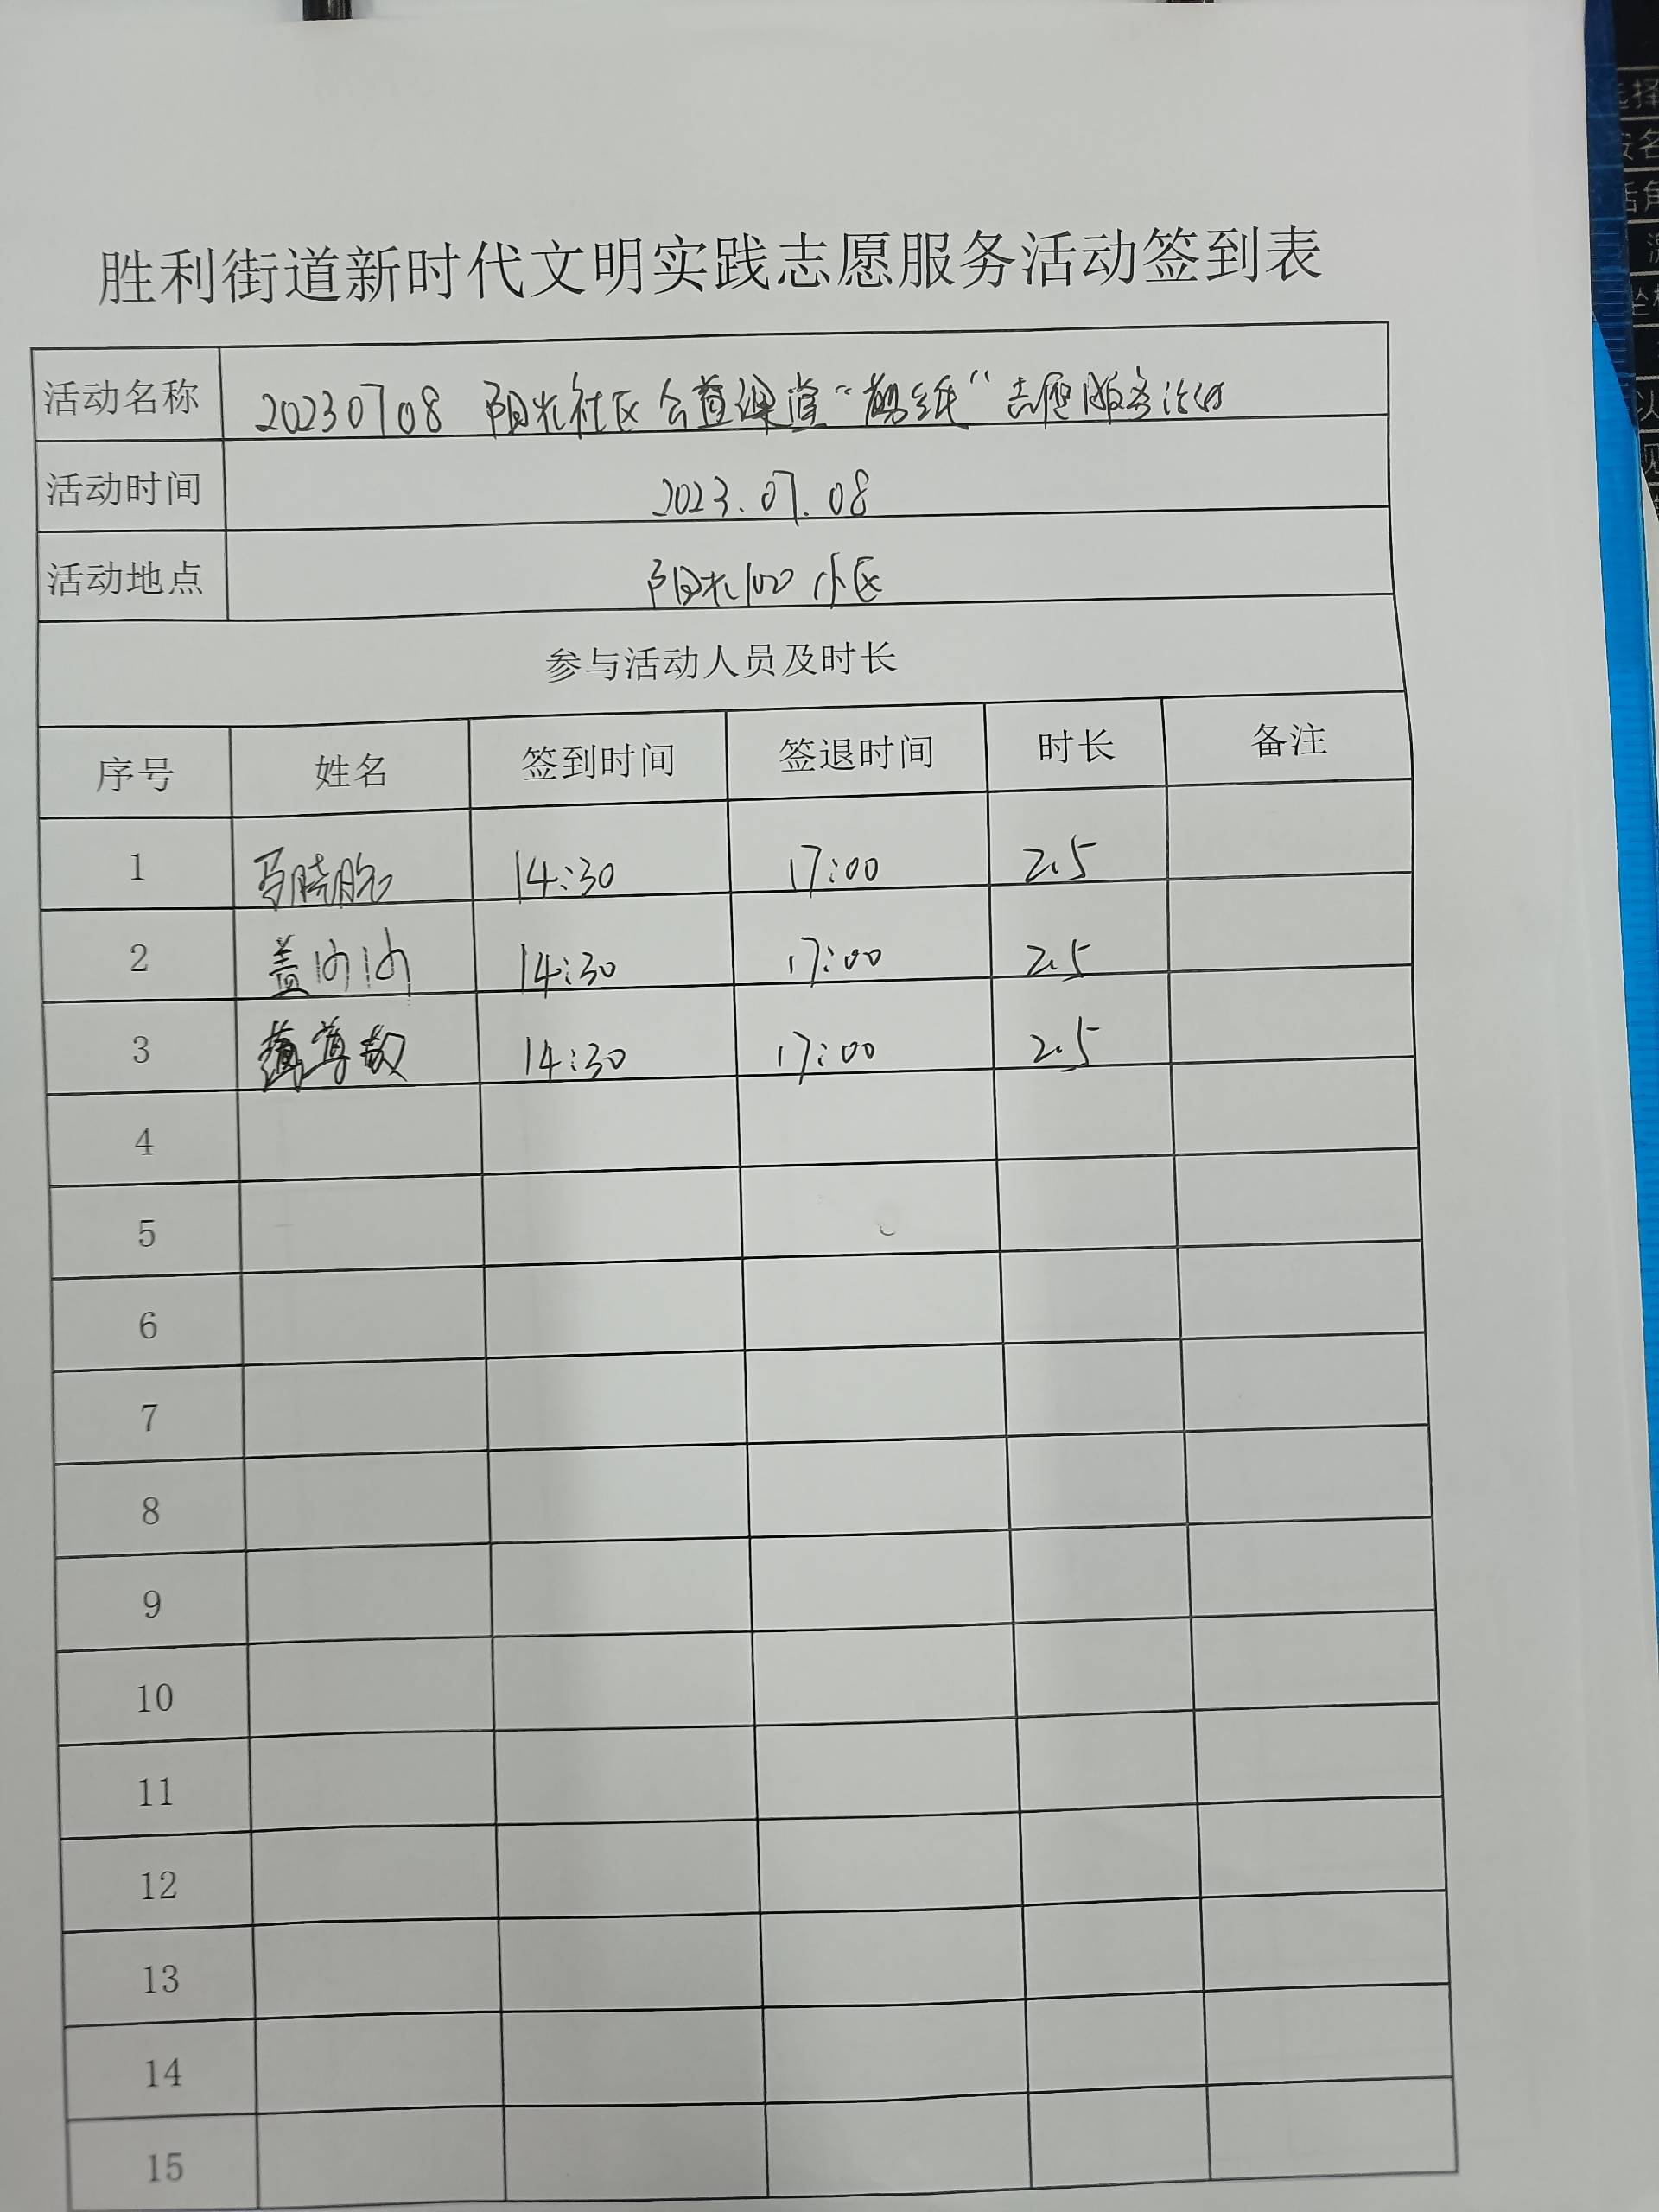 胜利街道新时代文明实践志愿服务活动签到表
活动名称 20230708 阳光社区公益课堂“剪纸”志愿服务活动
活动时间 2023.07.08
活动地点 阳光100小区
参与活动人员及时长
序号 姓名 签到时间 签退时间 时长 备注
1 马晓 14:30 17:00 2.5
2 盖 14:30 17:00 2.5
3 14:30 17:00 2.5
4
5
6
7
8
9
10
11
12
13
14
15
选择
按名